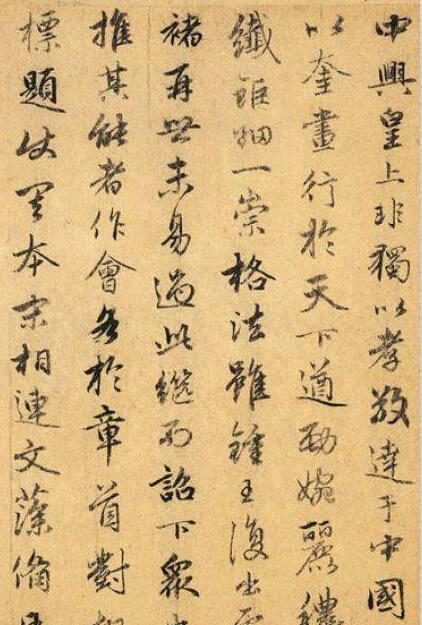 中興皇上非獨以孝敬達于中國
以奎畫行於天下遒勁婉麗穠
纖鉅細一崇格法雖鍾王復出
褚再世未易過此繼而詔下眾
推其能者作會各於章首對
標題仗署本末相連文藻備